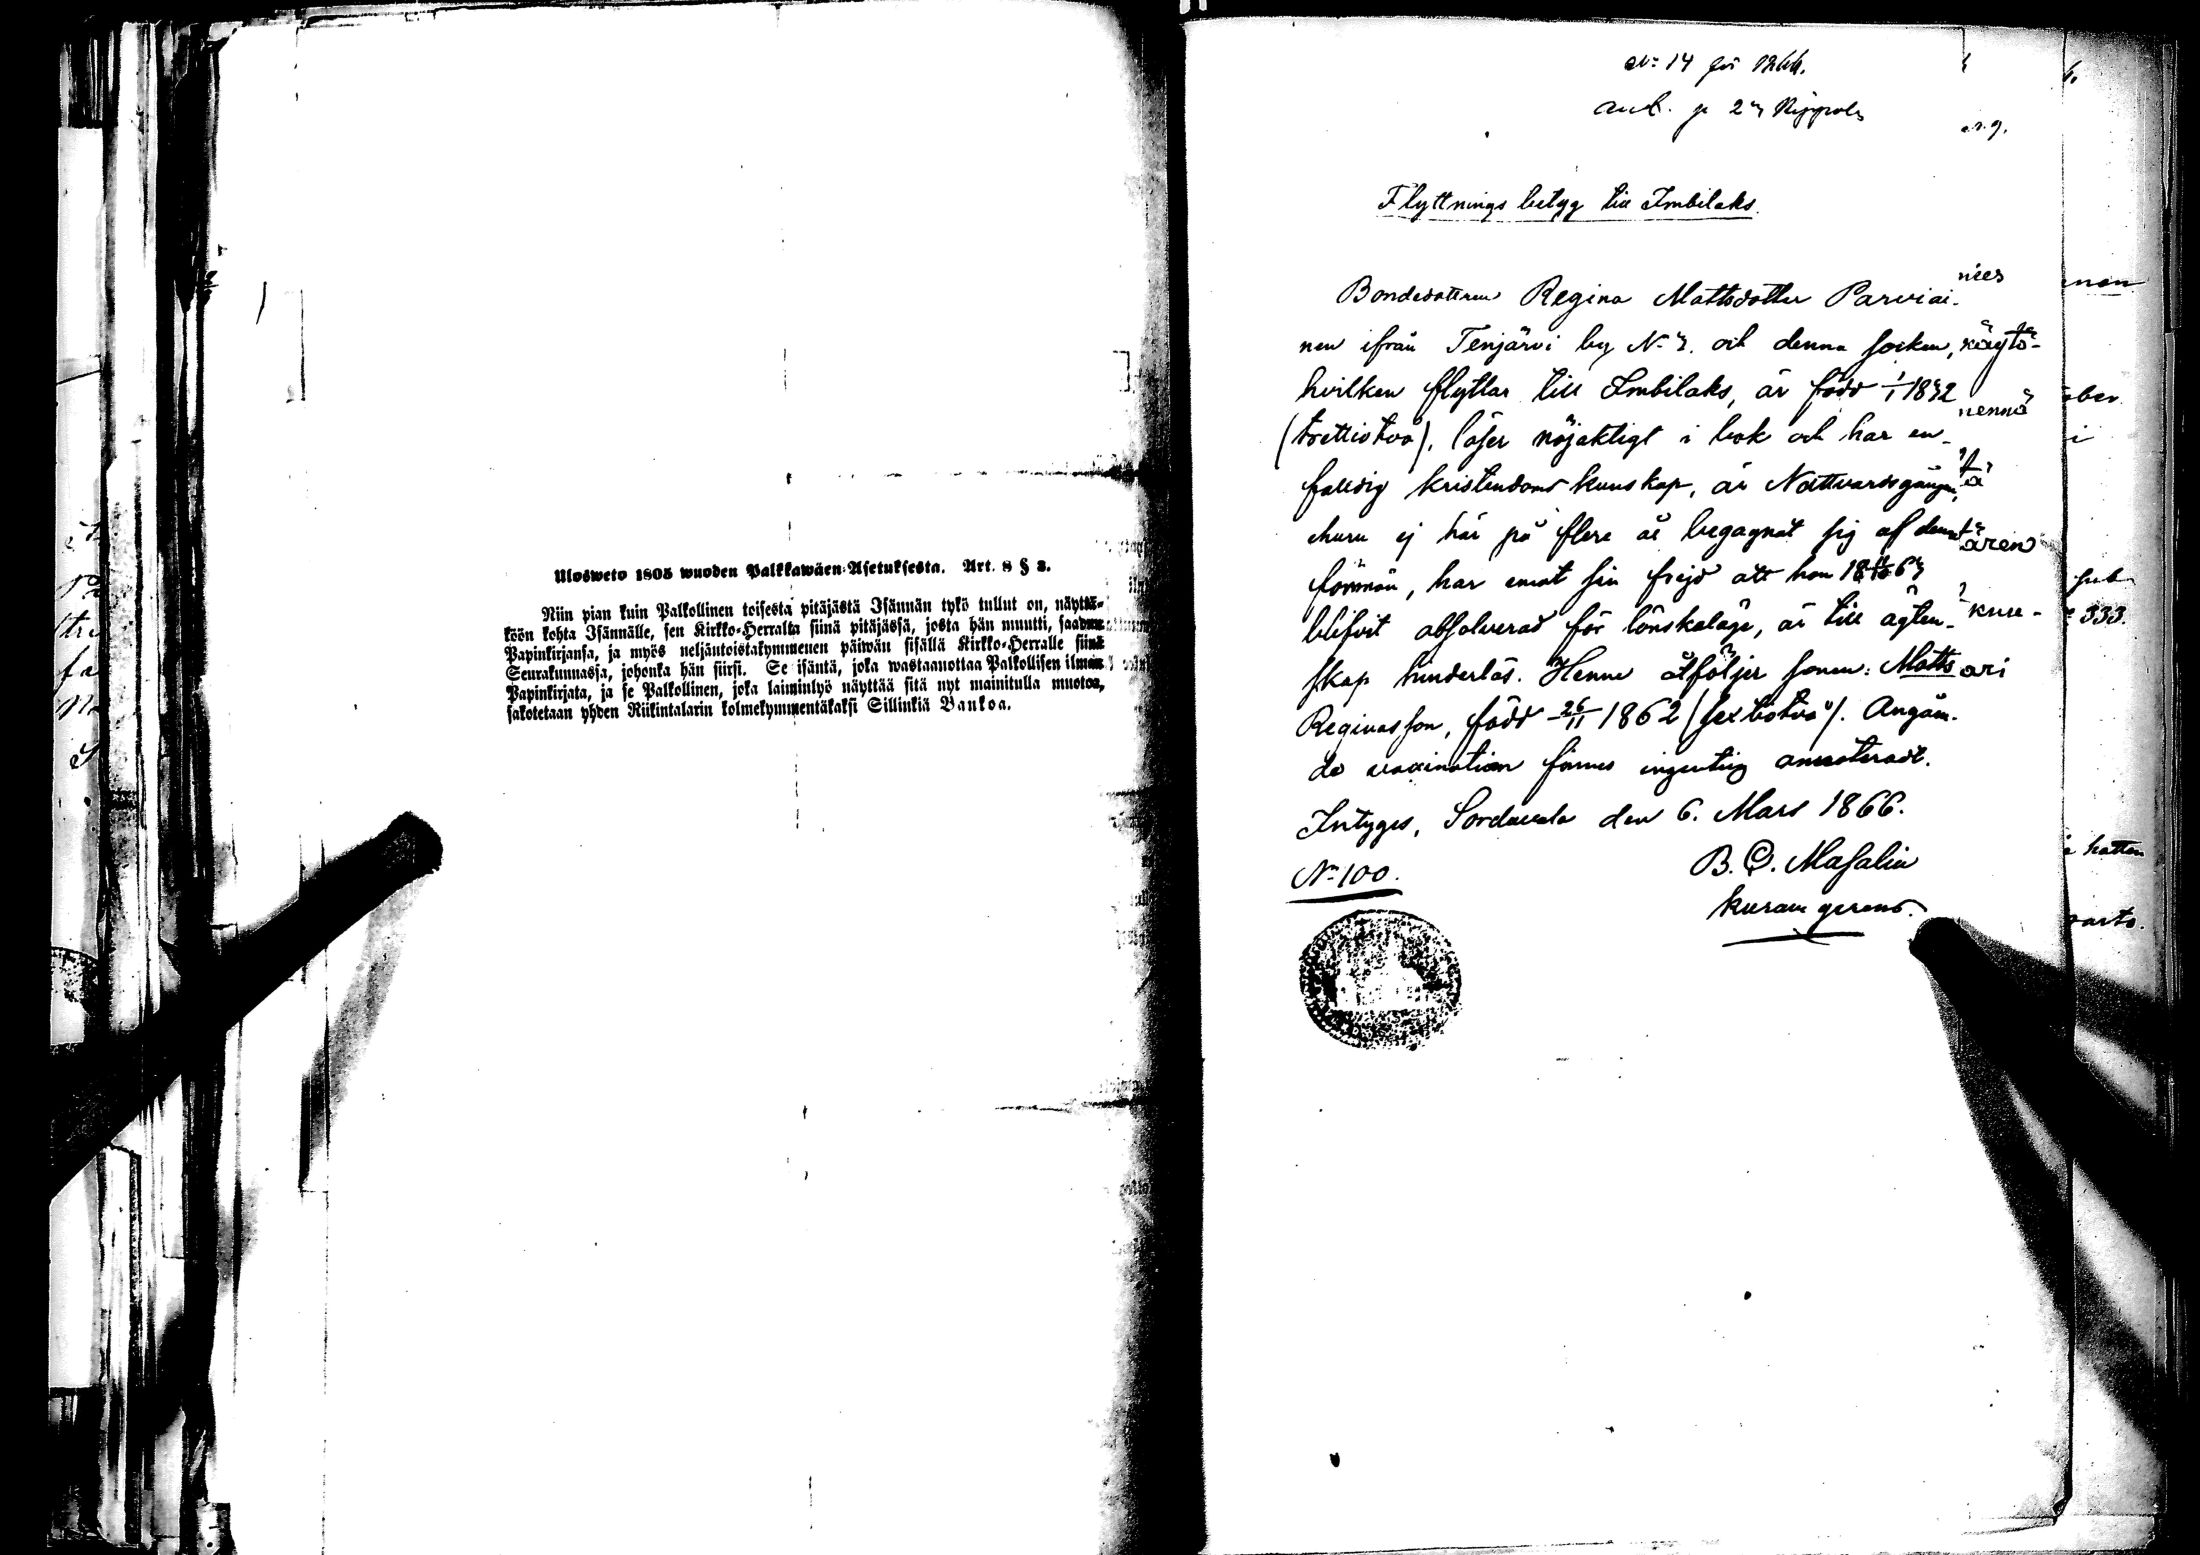 Ulosweto 1805 wuoden Palkkawäen-Asetuksesta. Art. 8 § 3.
Niin pian kuin Palkollinen toisesta pitäjästä Isännän tykö tullut on, näyttä-
köön kohta Isännälle, sen Kirkko-Herralta siinä pitäjässä, josta hän muutti, saadun
Papinkirjansa, ja myös neljäntoistakymmenen päiwän sisällä Kirkko-Herralle siinä
Seurakunnassa, johonka hän siirsi. Se isäntä, joka wastaanottaa Palkollisen ilman
Papinkirjata, ja se Palkollinen, joka laiminlyö näyttää sitä nyt mainitulla muotoa,
sakotetaan yhden Riikintalarin kolmekymmentäkaksi Sillinkiä Bankoa.
N:o 14 för 1866.
Flyttnings betyg till Imbilaks.
Bondedottren Regina Mattsdotter Parviai-
nen ifrån Tenjärvi by N:o 3. och denna socken,
hvilken flyttar till Imbilaks, är född 1/1 1832
(trettiotvå), läser nöjaktigt i bok och har en-
faldig kristendoms kunskap, är Nattvardsgången,
ehuru ej här på flere år begagnat sig af denna
förmån, har emot sin frejd att hon 18 63
blifvit absolverad för lönskaläge, är till ägten-
skap hinderlös. Henne åtföljer sonen: Matts
Reginasson, född 26/11 1862 (sextiotvå). Angåen-
de vaccination finnes ingenting annoteradt.
Intygas, Sordavala den 6. Mars 1866.
N:o 100.
B. C. Masalin
kuram gerens.
nies
käytö-
nennä
tä
ären
kuu-
ari
333.
hattan